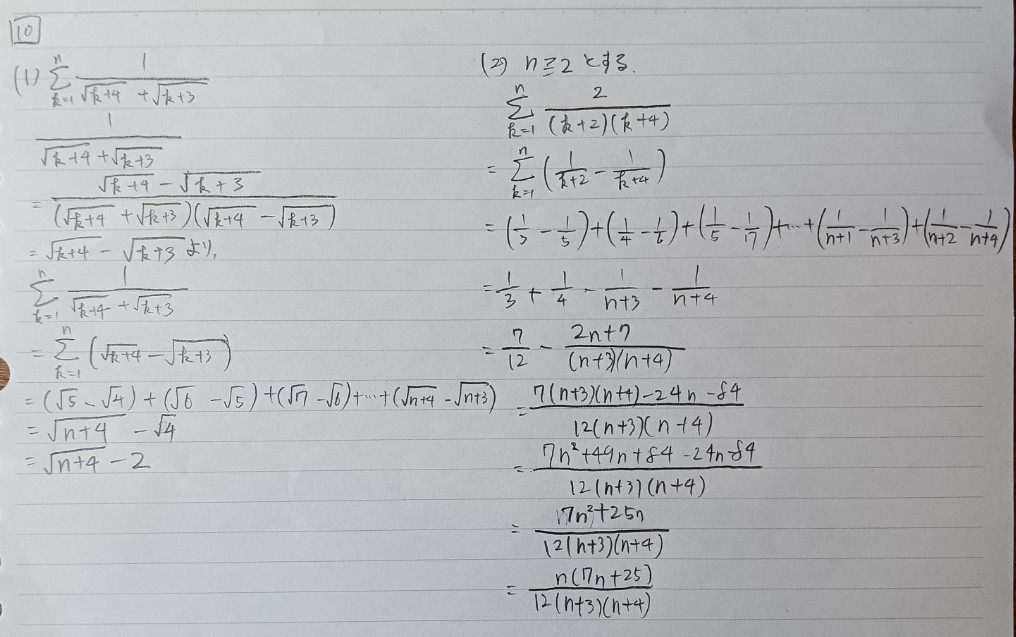 10
(1) \sum_{k=1}^{n} \frac{1}{\sqrt{k+4} + \sqrt{k+3}}
\frac{1}{\sqrt{k+4} + \sqrt{k+3}}
= \frac{\sqrt{k+4} - \sqrt{k+3}}{(\sqrt{k+4} + \sqrt{k+3})(\sqrt{k+4} - \sqrt{k+3})}
= \sqrt{k+4} - \sqrt{k+3} より,
\sum_{k=1}^{n} \frac{1}{\sqrt{k+4} + \sqrt{k+3}}
= \sum_{k=1}^{n} (\sqrt{k+4} - \sqrt{k+3})
= (\sqrt{5} - \sqrt{4}) + (\sqrt{6} - \sqrt{5}) + (\sqrt{7} - \sqrt{6}) + … + (\sqrt{n+4} - \sqrt{n+3})
= \sqrt{n+4} - \sqrt{4}
= \sqrt{n+4} - 2
(2) n≧2 とする.
\sum_{k=1}^{n} \frac{2}{(k+2)(k+4)}
= \sum_{k=1}^{n} (\frac{1}{k+2} - \frac{1}{k+4})
= (\frac{1}{3} - \frac{1}{5}) + (\frac{1}{4} - \frac{1}{6}) + (\frac{1}{5} - \frac{1}{17}) + … + (\frac{1}{n+1} - \frac{1}{n+3}) + (\frac{1}{n+2} - \frac{1}{n+4})
= \frac{1}{3} + \frac{1}{4} - \frac{1}{n+3} - \frac{1}{n+4}
= \frac{7}{12} - \frac{2n+7}{(n+3)(n+4)}
= \frac{7(n+3)(n+4) - 24n - 84}{12(n+3)(n+4)}
= \frac{7n^2 + 49n + 84 - 24n - 84}{12(n+3)(n+4)}
= \frac{17n^2 + 25n}{12(n+3)(n+4)}
= \frac{n(7n+25)}{12(n+3)(n+4)}